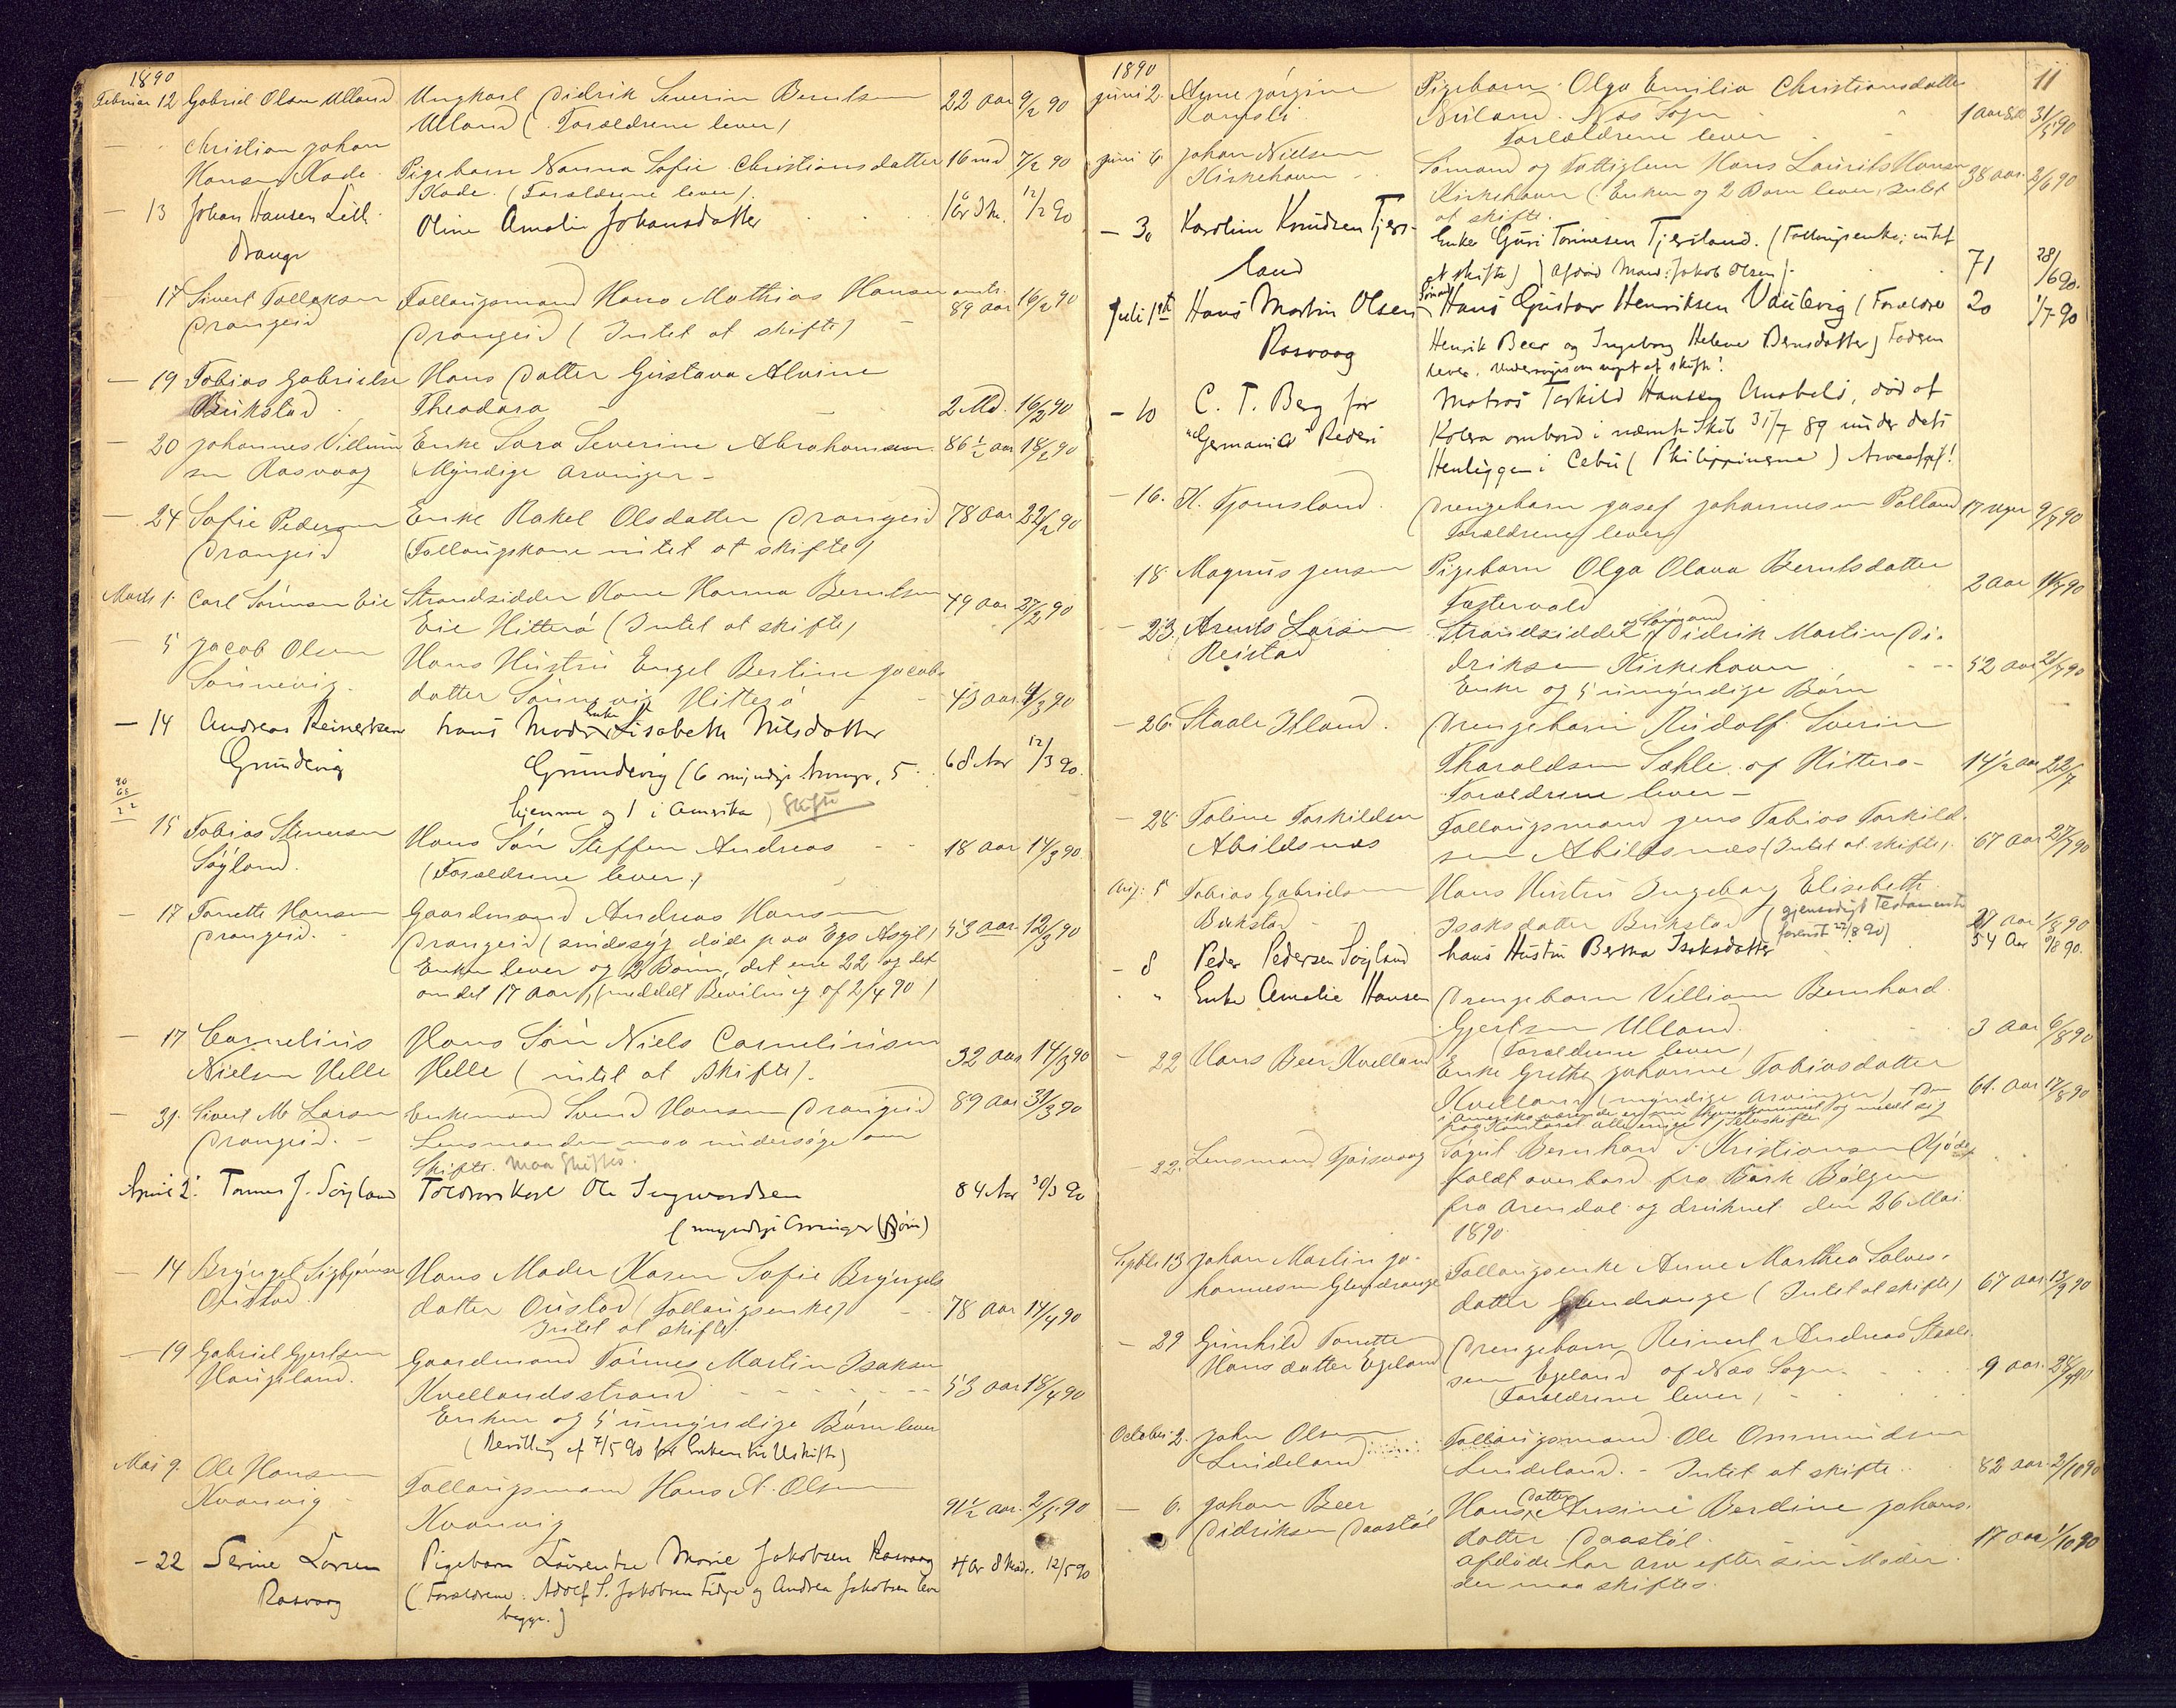 1890
Februar 12 Gabriel Olsen Ulland Ungkarl Didrik Severin Berntsen 22 aar 9/2 90
Ulland (Forældrene lever)
Christian Johan
Hansen Kade Pigebarn Nanna Sofie Christiansdatter 16 md 7/2 90
Kade. (Forældrene lever).
— 13 Johan Hansen Lill Oline Amalie Johansdatter 12/2 90
drange
17 Sivert Tollaksen Follaugsmand Hans Mathias Hansen 89 aar 16/2 90
Drangeid Drangeid (Intet at skifte)
— 19 Tobias Gabrielsen Hans Datter Gustava Alvine
Birkstad Theodora 2 Md. 16/2 90
— 20 Johannes Villum Enke Sara Severine Abrahamsen 86 ½ aar 18/2 90
sen Rasvaag Myndige Arvinger –
— 24 Sofie Pedersen Enke Rakel Olsdatter Drangeid 78 aar 22/2 90
Drangeid (Follaugskone intet at skifte)
Marts 1. Carl Sørensen Eie Strandsidder Kone Hanna Berntsen 49 aar 27/2 90
Eie Hitterø (Intet at skifte)
— 5 Jacob Olsen Hans Hustru Engel Bertine Jacobs
Sønnevig datter Sønnevig Hitterø 43 aar 4/3 90
— 14 Andreas Reinertsen hans Moder Enke Lisabeth Nilsdatter
Grundevig Grundevig (6 myndige Arvinger, 5 68 Aar 12/3 90.
hjemme og 1 i Amerika) Skifte
90
68
22
15 Tobias Stenersen Hans Søn Steffen Andreas 18 aar 14/3 90
Søyland. (Forældrene lever.)
— 17 Tonette Hansen Gaardmand Andreas Hansen
Drangeid. Drangeid (sindssyg døde paa Egs Asyl) 53 aar 12/3 90
Enken lever og 2 Børn, det ene 22 og det
andet 17 aar, (meddelt Bevilning af 2/4 90)
— 17 Cornelius Hans Søn Niels Corneliusen
Nielsen Helle Helle (intet at skifte). 32 aar 14/3 90
— 31. Sivert M. Larsen Enkemand Svend Hansen Drangeid 89 aar 31/3 90
Drangeid. – Lensmanden maa undersøge om
Skifte. Maa skiftes.
April 2. Tønnes J. Søyland Føderaadskarl Ole Ingvardsen 84 Aar 30/3 90
(myndige Arvinger (Børn)
— 14 Bryngel Sigbjørnsen Hans Moder Karen Sofie Bryngels
Oustad. datter Oustad (Follaugsenke) 78 aar 14/4 90
Intet at skifte.
— 19 Gabriel Gjertsen Gaardmand Tønnes Martin Isaksen
Haugeland. Kvellandsstrand 53 aar 18/4 90
Enken og 5 umyndige Børn lever
(Bevilling af 7/5 90 for Enken til Uskifte)
Mai 9. Ole Hansen Follaugsmand Hans A. Olsen
Kvanvig Kvanvig 91 ½ aar. 2/5 90
— 22 Serine Larsen Pigebarn Laurentze Marie Jakobsen Rasvaag 4 Ar 8 Mdr. 12/5 90
Rasvaag (Forældrene: Adolf S. Jakobsen Fidje og Andrea Jakobsen lever
begge.)
1890 11
Juni 2. Anne Jørgine Pigebarn Olga Emilia Christiansdatter
Ramsli Nuland. Næs Sogn 31/5 90
Forældrene lever
Juni 6. Johan Nielsen Sømand og Fattiglem Hans Laurits Hansen
Kirkehavn Kirkehavn (Enken og 2 Børn lever. Intet 38 aar 2/6 90
at skifte.
— 30 Karoline Knudsen Tjers- Enke Guri Tønnesen Tjersland. (Follaugsenke; intet
land at skifte) (Afdød Mand: Jakob Olsen). 71 28/6 90.
Juli 1st Hans Martin Olsen Sømand Hans Gustav Henriksen Vaulevig (Forældre 20 1/7 90
Rasvaag Henrik Beer og Ingeborg Helene Berntsdatter) Faderen
lever. Undersøges om noget at skifte!
— 10 C. T. Berg for Matros Terkild Hansen Anabelø, død af
"Germania" Rederi Kolera ombord i nævnte Skib 31/7 89 under dets
Henliggen i Cebu (Philippinerne)
— 16. K. Tjomsland. Drengebarn Josef Johannesen Polland 17 uger 9/7 90
Forældrene lever
18 Magnus Jensen Pigebarn Olga Olava Berntsdatter
2 aar
— 23 Arents Larsen Strandsidder og Sømand Didrik Martin Di-
Reistad driksen Kirkehavn 52 aar 21/7 90
Enke og 5 umyndige Børn
— 26. Staale Ueland. Drengebarn Rudolf Severin
Tharaldsen Sæhle af Hitterø – 14 ½ aar 22/7
Forældrene lever –
— 28. Toline Torkildsen Follaugsmand Jens Tobias Torkild-
Abildsnæs sen Abildsnæs (Intet at skifte). 67 aar 27/7 90
Aug. 5 Tobias Gabrielsen Hans Hustru Ingeborg Elisabeth
Birkstad Isaksdatter Birkstad (gjensidigt Testamente 1/8 90
forevist 22/8 90)
— 8 Peder Pedersen Søyland hans Hustru Berta Isaksdatter 54 Aar 9/8 90.
" Enke Amalie Hansen Drengebarn Villiam Bernhard
Gjertsen Ulland. 3 aar 6/8 90
(Forældrene lever)
— 22 Hans Beer Kvelland Enke Grethe Johanne Tobiasdatter
Kvelland (myndige Arvinger) 64. aar 17/8 90
— 22. Lensmand Tjørsvaag Søgut Bernhard S. Kristiansen
faldt overbord fra Bark Bølgen
fra Arendal og druknet den 26 Mai
1890.
Septbr 13 Johan Martin Jo- Follaugsenke Anne Marthea Salves-
hannesen Glendrange datter Glendrange (Intet at skifte) 67 aar 13/9 90
— 29 Gunhild Tonette Drengebarn Reinert Andreas Staale-
Hansdatter Egeland sen Egeland af Næs Sogn. 9 aar. 28/9 90
(Forældrene lever)
October 2. John Olsen Follaugsmand Ole Ommundsen
Lindeland Lindeland. – Intet at skifte 82 aar. 2/10 90
— 6. Johan Beer Hans Datter Ansine Berdine Johans-
Didriksen Daastøl datter Daastøl. 17 aar 1/10 90
Afdøde har Arv efter sin Moder
der maa skiftes.